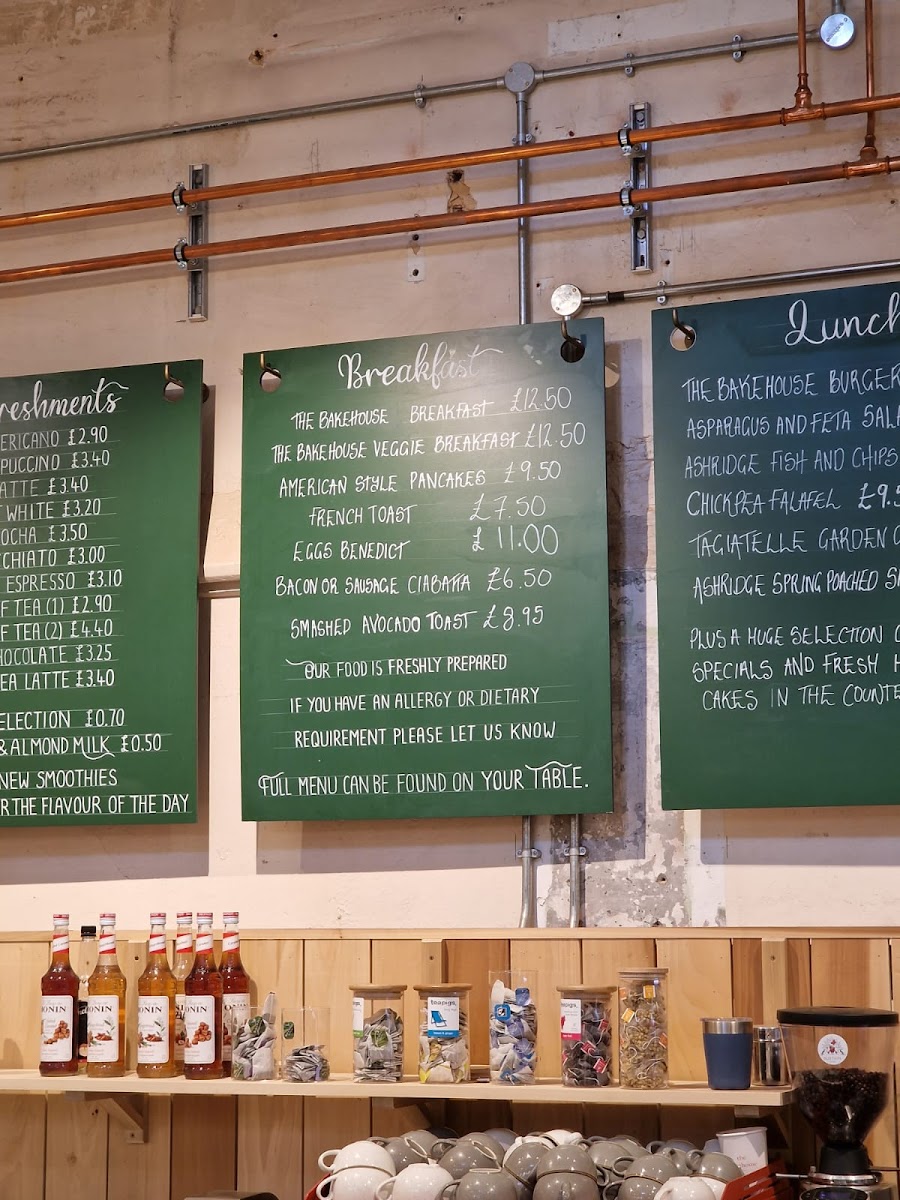 reshments
ERICANO £2.90
PUCCINO £3.40
ATTE £3.40
T WHITE £3.20
OCHA £3.50
CCHIATO £3.00
ESPRESSO £3.10
F TEA (1) £2.90
F TEA (2) £4.40
HOCOLATE £3.25
EA LATTE £3.40
ELECTION £0.70
& ALMOND MILK £0.50
NEW SMOOTHIES
R THE FLAVOUR OF THE DAY
Breakfast
THE BAKEHOUSE BREAKFAST £12.50
THE BAKEHOUSE VEGGIE BREAKFAST £12.50
AMERICAN STYLE PANCAKES £9.50
FRENCH TOAST £7.50
EGGS BENEDICT £11.00
BACON OR SAUSAGE CIABATTA £6.50
SMASHED AVOCADO TOAST £8.95
OUR FOOD IS FRESHLY PREPARED
IF YOU HAVE AN ALLERGY OR DIETARY
REQUIREMENT PLEASE LET US KNOW
FULL MENU CAN BE FOUND ON YOUR TABLE.
Lunch
THE BAKEHOUSE BURGER
ASPARAGUS AND FETA SALA
ASHRIDGE FISH AND CHIPS
CHICKPEA FALAFEL £9.5
TAGIATELLE GARDEN
ASHRIDGE SPRING POACHED
PLUS A HUGE SELECTION
SPECIALS AND FRESH H
CAKES IN THE COUNTE
ONIN
MONIN
MONIN
MONIN
teapigs